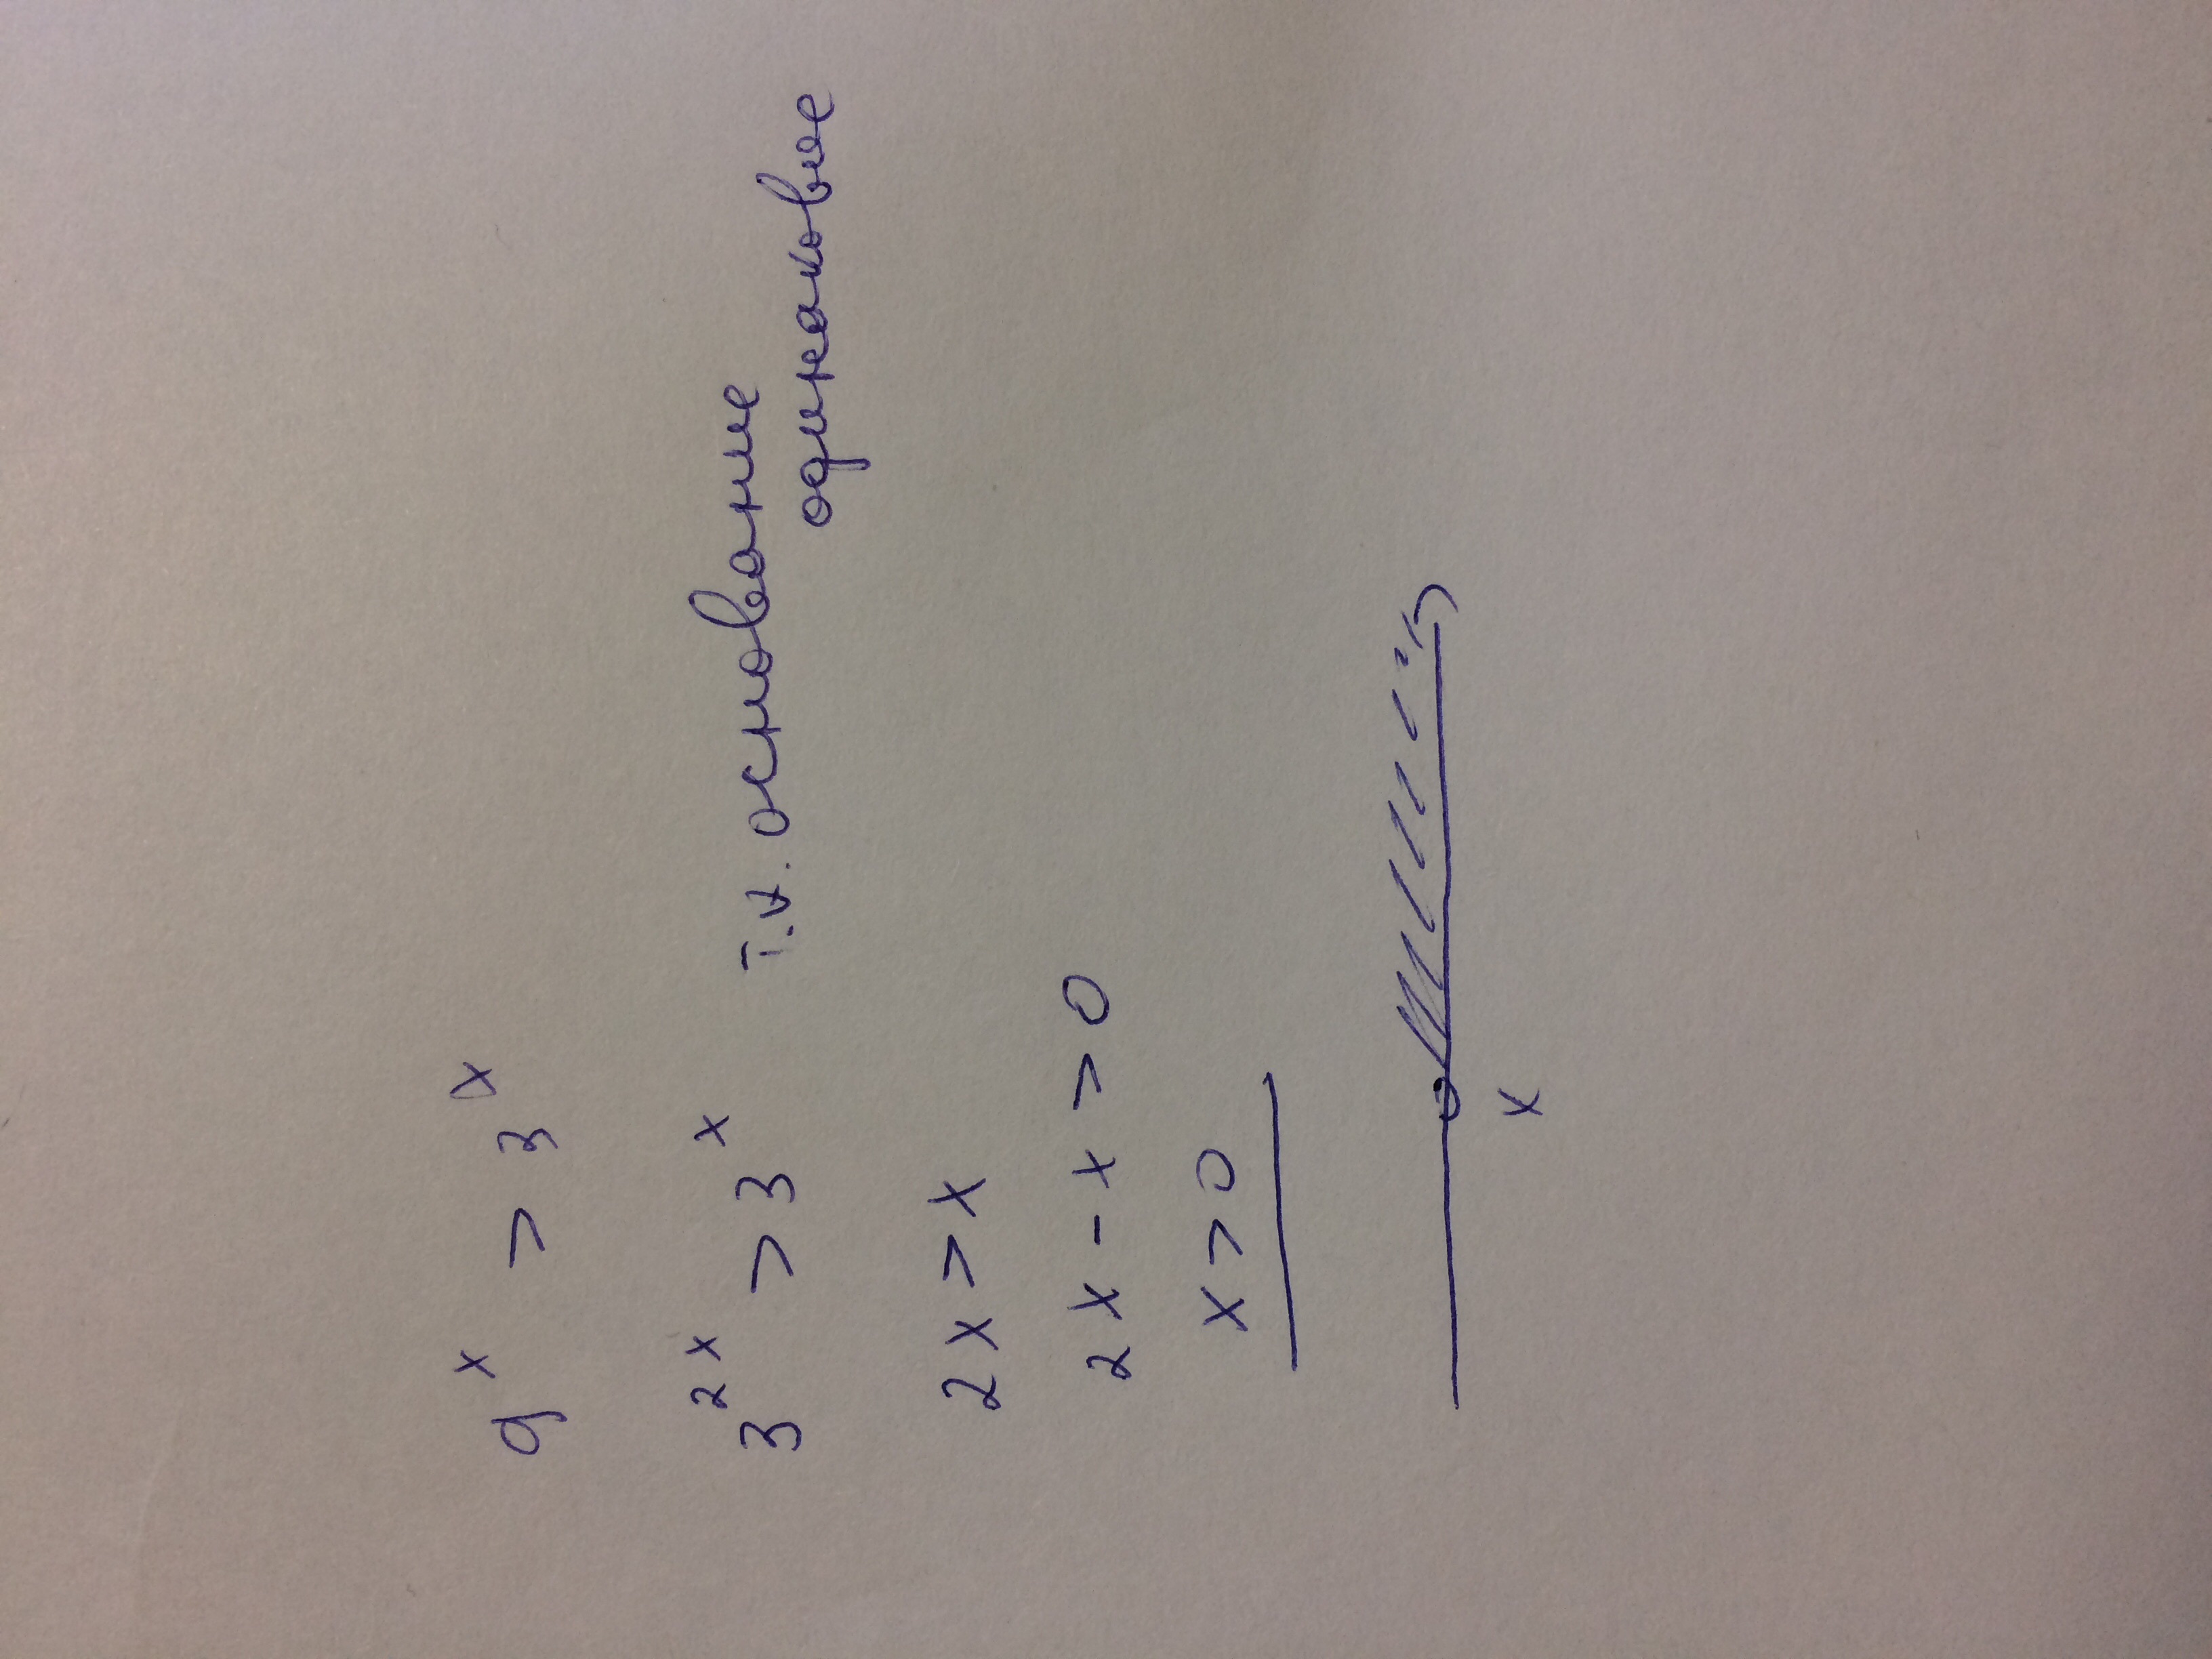 9ˣ > 3ˣ
3²ˣ > 3ˣ т.к. основание
одинаковое
2x > x
2x - x > 0
x > 0
x